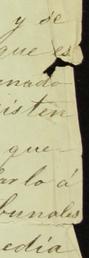 y se
que es
nado
isten
que-
arlo á
bunales
edia